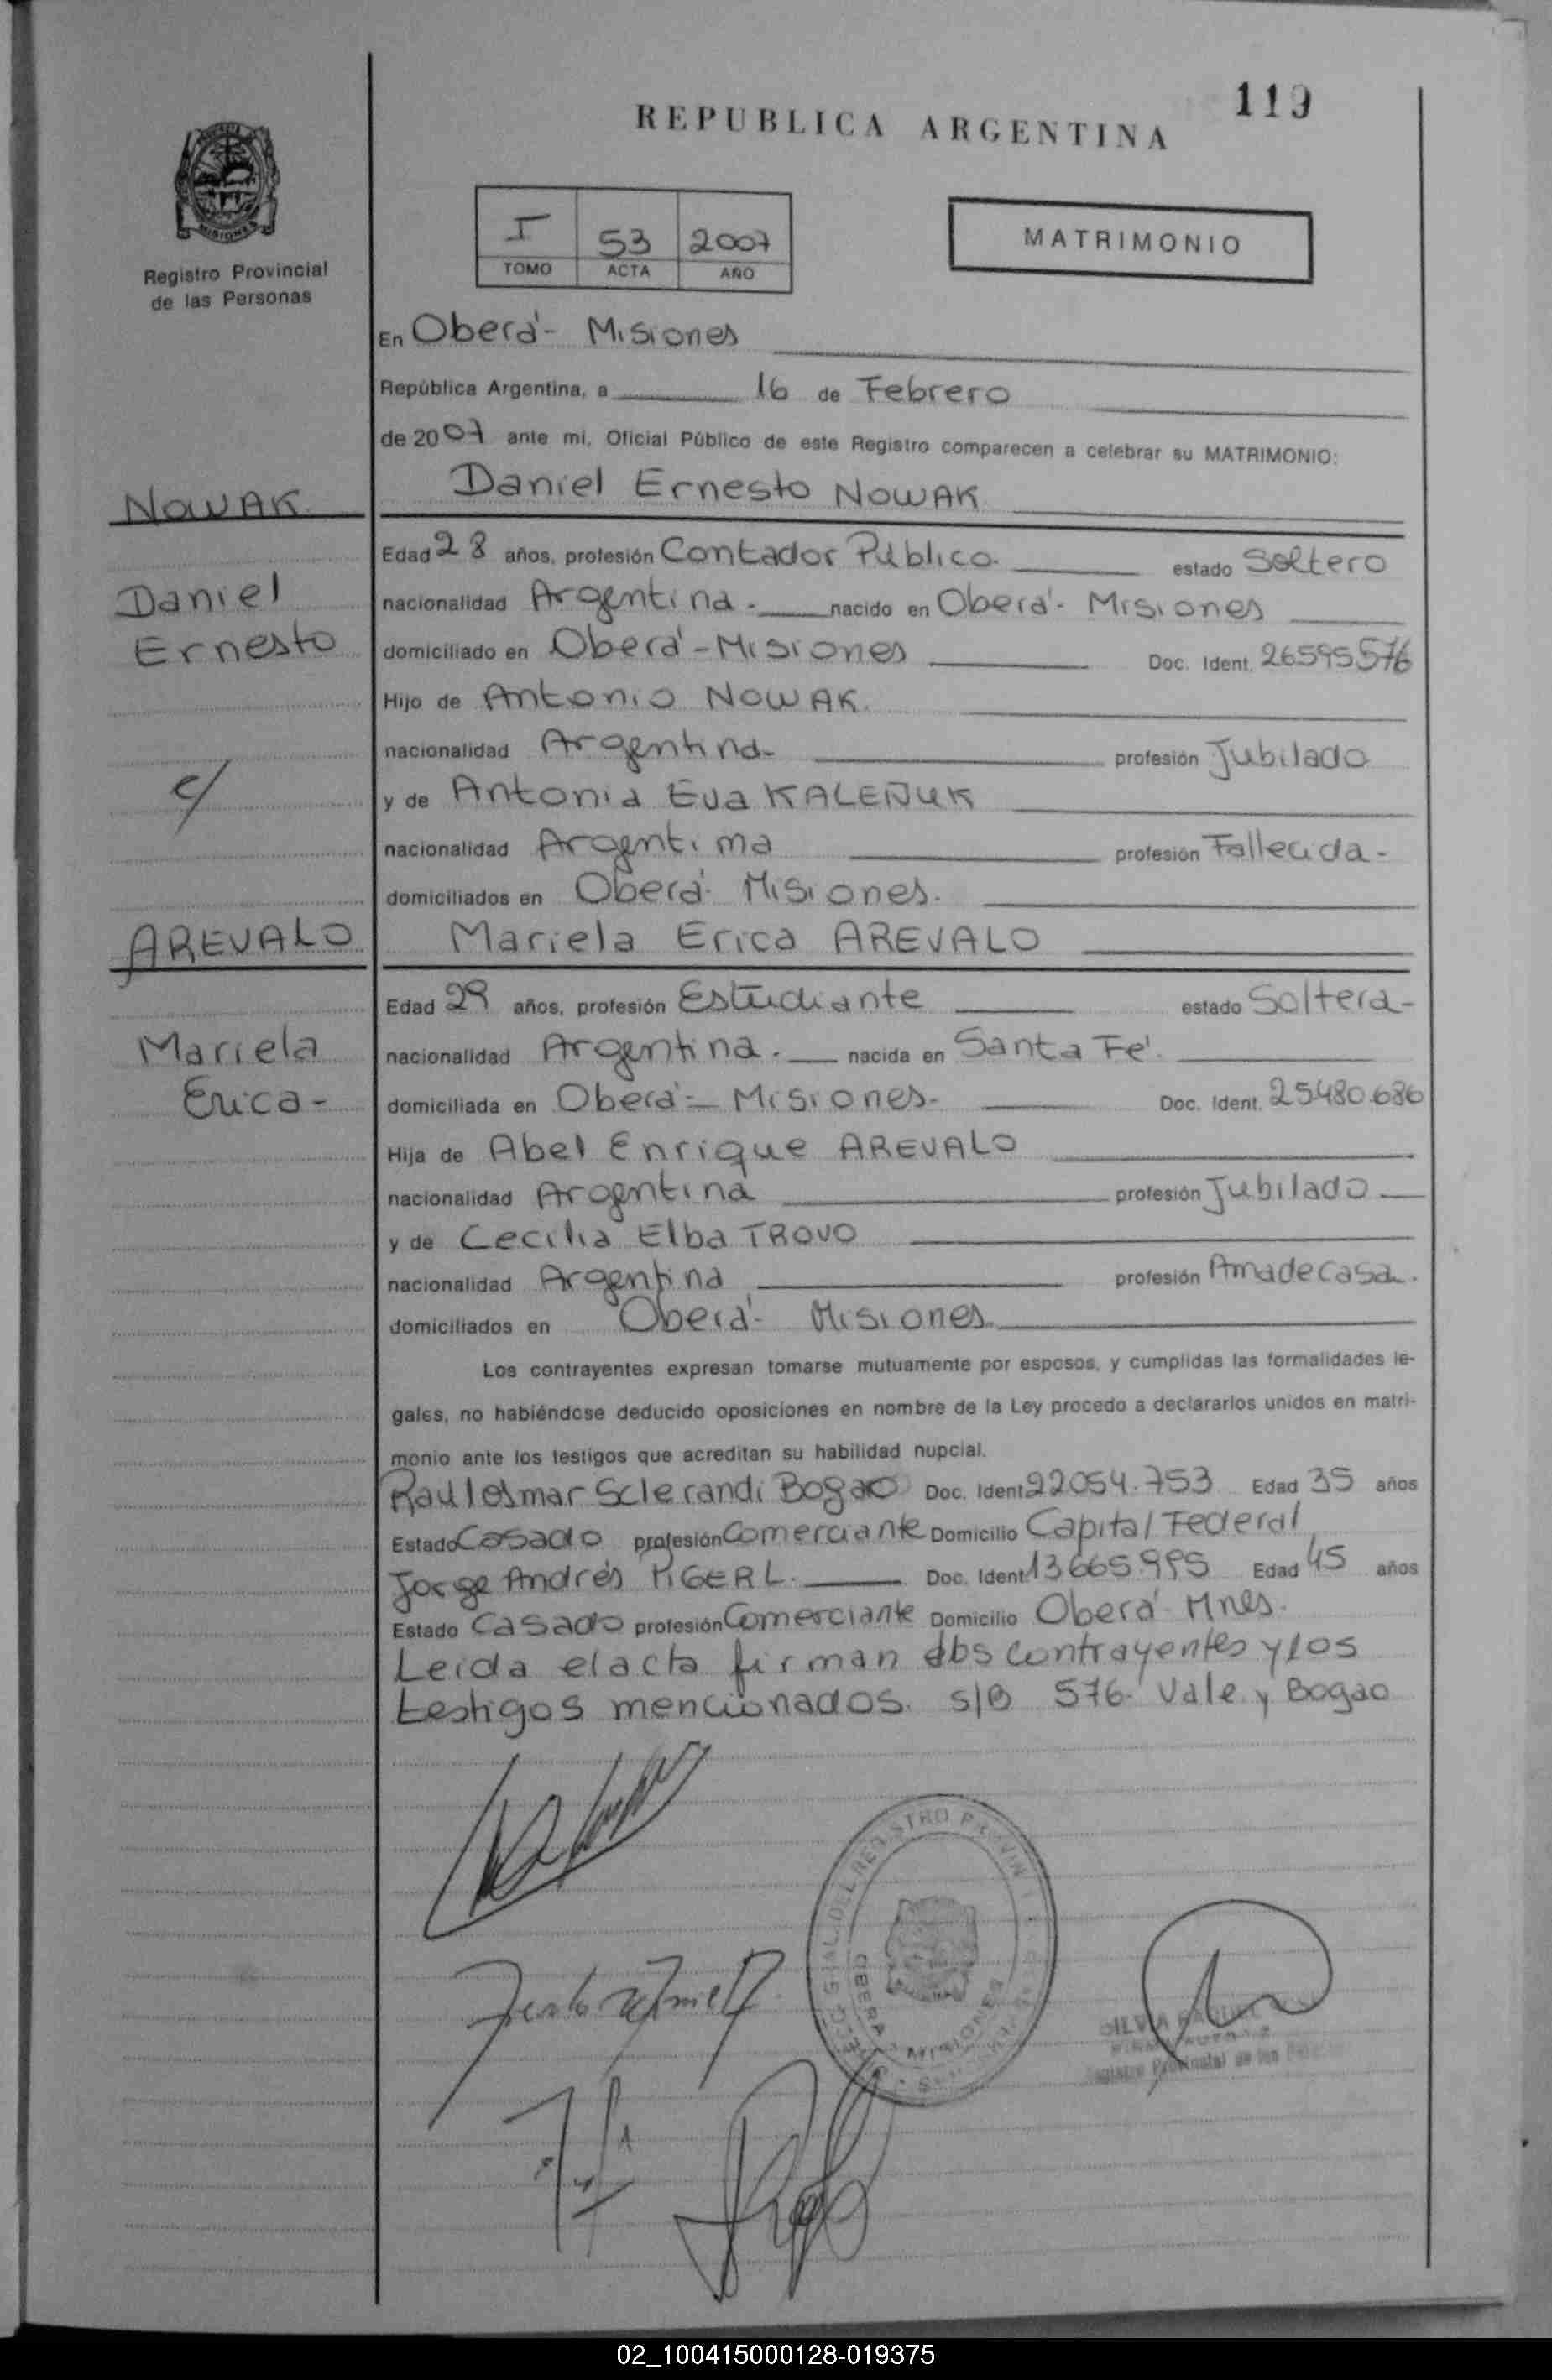 119
REPUBLICA ARGENTINA
MISIONES
Registro Provincial
de las Personas
I 53 2007
TOMO ACTA AÑO
MATRIMONIO
En Oberá- Misiones
República Argentina, a 16 de Febrero
de 2007 ante mi, Oficial Público de este Registro comparecen a celebrar su MATRIMONIO:
NOWAK
Daniel Ernesto NOWAK
Edad 28 años, profesión Contador Público. estado Soltero
Daniel
nacionalidad Argentina. nacido en Oberá- Misiones
Ernesto
domiciliado en Oberá-Misiones Doc. Ident. 26595576
Hijo de Antonio NOWAK.
nacionalidad Argentina- profesión Jubilado
c/
y de Antonia Eva KALEÑUK
nacionalidad Argentina profesión Fallecida-
domiciliados en Oberá- Misiones.
AREVALO
Mariela Erica AREVALO
Edad 29 años, profesión Estudiante estado Soltera-
Mariela
nacionalidad Argentina. nacida en Santa Fé.
Erica-
domiciliada en Oberá- Misiones- Doc. Ident. 25480.686
Hija de Abel Enrique AREVALO
nacionalidad Argentina profesión Jubilado
y de Cecilia Elba TROVO
nacionalidad Argentina profesión Amadecasa.
domiciliados en Oberá- Misiones.
Los contrayentes expresan tomarse mutuamente por esposos, y cumplidas las formalidades le-
gales, no habiéndose deducido oposiciones en nombre de la Ley procedo a declararlos unidos en matri-
monio ante los testigos que acreditan su habilidad nupcial.
Raul Osmar Sclerandi Bogao Doc. Ident. 22054.753 Edad 35 años
Estado Casado profesión Comerciante Domicilio Capital Federal
Jorge Andrés PIGERL. Doc. Ident. 13665.995 Edad 45 años
Estado Casado profesión Comerciante Domicilio Oberá- Mnes.
Leida el acta firman los contrayentes y los
testigos mencionados. s/B 576. Vale y Bogao
OBERA MISIONES
SILVIA
Registro Provincial de las
02_100415000128-019375